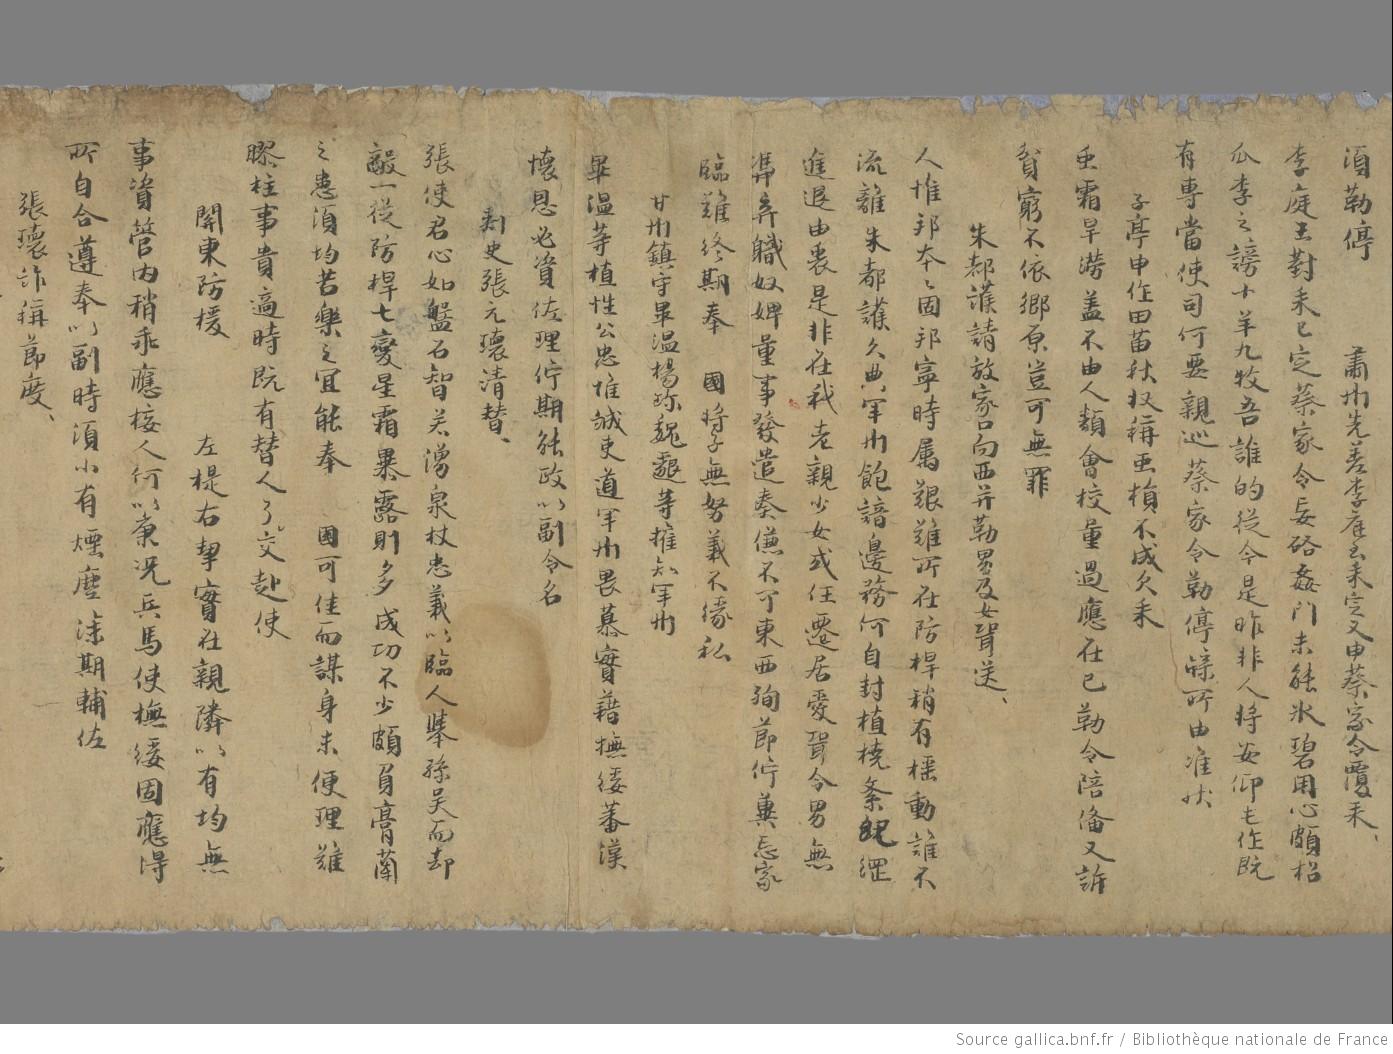 須勒停　　　肅州先差李庭玉耒定又申蔡家令覆耒、
李庭玉對耒已定蔡家令妄硌姦門未能氷碧用心頗招
瓜李之謗十羊九牧吾誰的從今是昨非人將安仰七作既
有專當使司何要親巡蔡家令勒停牒所由准狀
子亭申作田苗秋収稱虫損不成欠耒
虫霜旱澇盖不由人類會校量過應在已勒令陪備又訴
貧窮不依鄉原豈可無罪
朱都護請放家口向西并勒男及女聟送、
人惟邦本〻固邦寧時属艱難所在防捍稍有樶動誰不
流離朱都護久典軍州飽諳邊務何自封植撓紊紀綱
進退由喪是非在我老親少女或任遷居愛聟令男無
凴弃職奴婢量事發遣奏傔不可東西殉節佇兼忘家
臨難終期奉　國將子無努義不緣私
甘州鎮守畢温楊珎魏邈等權知軍州
畢温等植性公忠惟誠吏道軍州畏慕實藉撫綏蕃漢
懷恩必資佐理佇期能政以副令名
刾史張元瓌清替、
張使君心如盤石智若湧泉杖忠義以臨人舉孫吳而却
敵一從防捍七變星霜暴露則多成功不少頗負膏蘭
之患須均苦樂之宜能奉　國可佳而謀身未便理難
膠柱事貴適時既有替人了〻交赴使
關東防援　　　左提右挈實在親隣以有均無
事資管內稍乖應接人何以康况兵馬使撫綏固應得
所自合遵奉以副時須小有煙塵深期輔佐
張瓌詐稱節度、